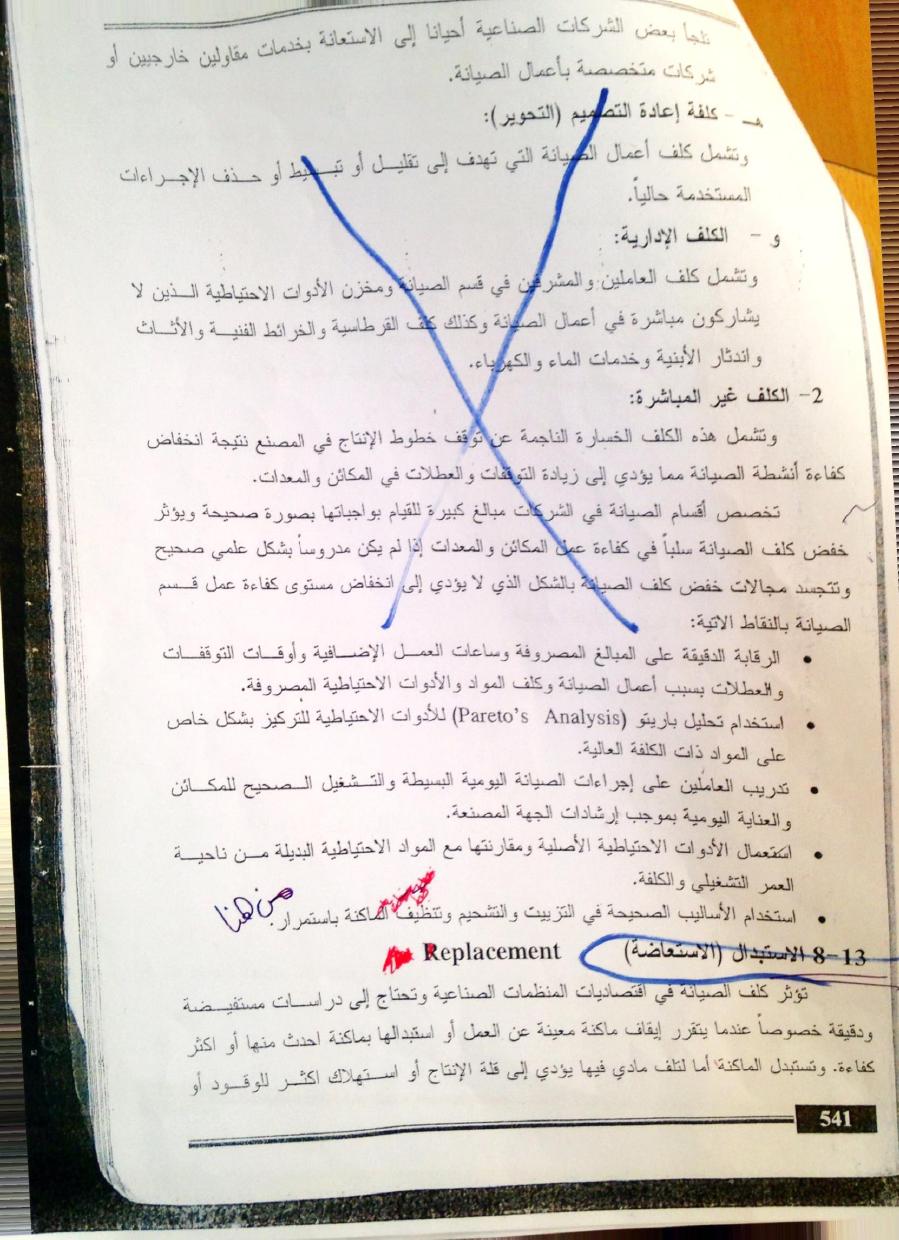 تلجأ بعض الشركات الصناعية أحيانا إلى الاستعانة بخدمات مقاولين خارجيين أو
شركات متخصصة بأعمال الصيانة.
هـ - كلفة إعادة التصميم (التحوير):
وتشمل كلف أعمال الصيانة التي تهدف إلى تقليل أو تبسيط أو حذف الإجراءات
المستخدمة حالياً.
و - الكلف الإدارية:
وتشمل كلف العاملين والمشرفين في قسم الصيانة ومخزن الأدوات الاحتياطية الذين لا
يشاركون مباشرة في أعمال الصيانة وكذلك كلف القرطاسية والخرائط الفنية والأثاث
واندثار الأبنية وخدمات الماء والكهرباء.
2- الكلف غير المباشرة:
وتشمل هذه الكلف الخسارة الناجمة عن توقف خطوط الإنتاج في المصنع نتيجة انخفاض
كفاءة أنشطة الصيانة مما يؤدي إلى زيادة التوقفات والعطلات في المكائن والمعدات.
تخصص أقسام الصيانة في الشركات مبالغ كبيرة للقيام بواجباتها بصورة صحيحة ويؤثر
خفض كلف الصيانة سلباً في كفاءة عمل المكائن والمعدات إذا لم يكن مدروساً بشكل علمي صحيح
وتتجسد مجالات خفض كلف الصيانة بالشكل الذي لا يؤدي إلى انخفاض مستوى كفاءة عمل قسم
الصيانة بالنقاط الاتية:
• الرقابة الدقيقة على المبالغ المصروفة وساعات العمل الإضافية وأوقات التوقفات
والعطلات بسبب أعمال الصيانة وكلف المواد والأدوات الاحتياطية المصروفة.
• استخدام تحليل باريتو (Pareto's Analysis) للأدوات الاحتياطية للتركيز بشكل خاص
على المواد ذات الكلفة العالية.
• تدريب العاملين على إجراءات الصيانة اليومية البسيطة والتشغيل الصحيح للمكائن
والعناية اليومية بموجب إرشادات الجهة المصنعة.
• استعمال الأدوات الاحتياطية الأصلية ومقارنتها مع المواد الاحتياطية البديلة من ناحية
العمر التشغيلي والكلفة.
• استخدام الأساليب الصحيحة في التزييت والتشحيم وتنظيف الماكنة باستمرار.
من هنا
8-13 الاستبدال (الاستعاضة) Replacement
تؤثر كلف الصيانة في اقتصاديات المنظمات الصناعية وتحتاج إلى دراسات مستفيضة
ودقيقة خصوصاً عندما يتقرر إيقاف ماكنة معينة عن العمل أو استبدالها بماكنة احدث منها أو اكثر
كفاءة. وتستبدل الماكنة أما لتلف مادي فيها يؤدي إلى قلة الإنتاج أو استهلاك اكثر للوقود أو
541